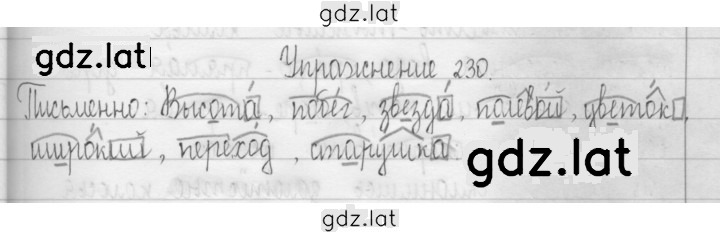 gdz.lat
gdz.lat
Упражнение 230.
Письменно: Высота́, побе́г, звезда́, полево́й, цвето́к,
широ́кий, перехо́д, стару́шка.
gdz.lat
gdz.lat